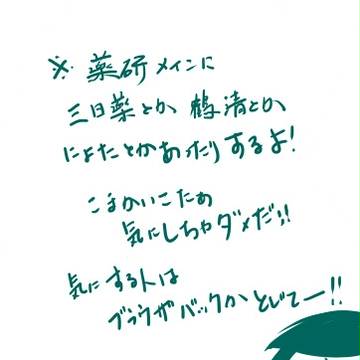 ※薬研メインに
三日薬とか 鶴清とか
にょたとかあったりするよ!
こまかいこたぁ
気にしちゃダメだ!!
気にする人は
ブラウザバックかとじてー!!